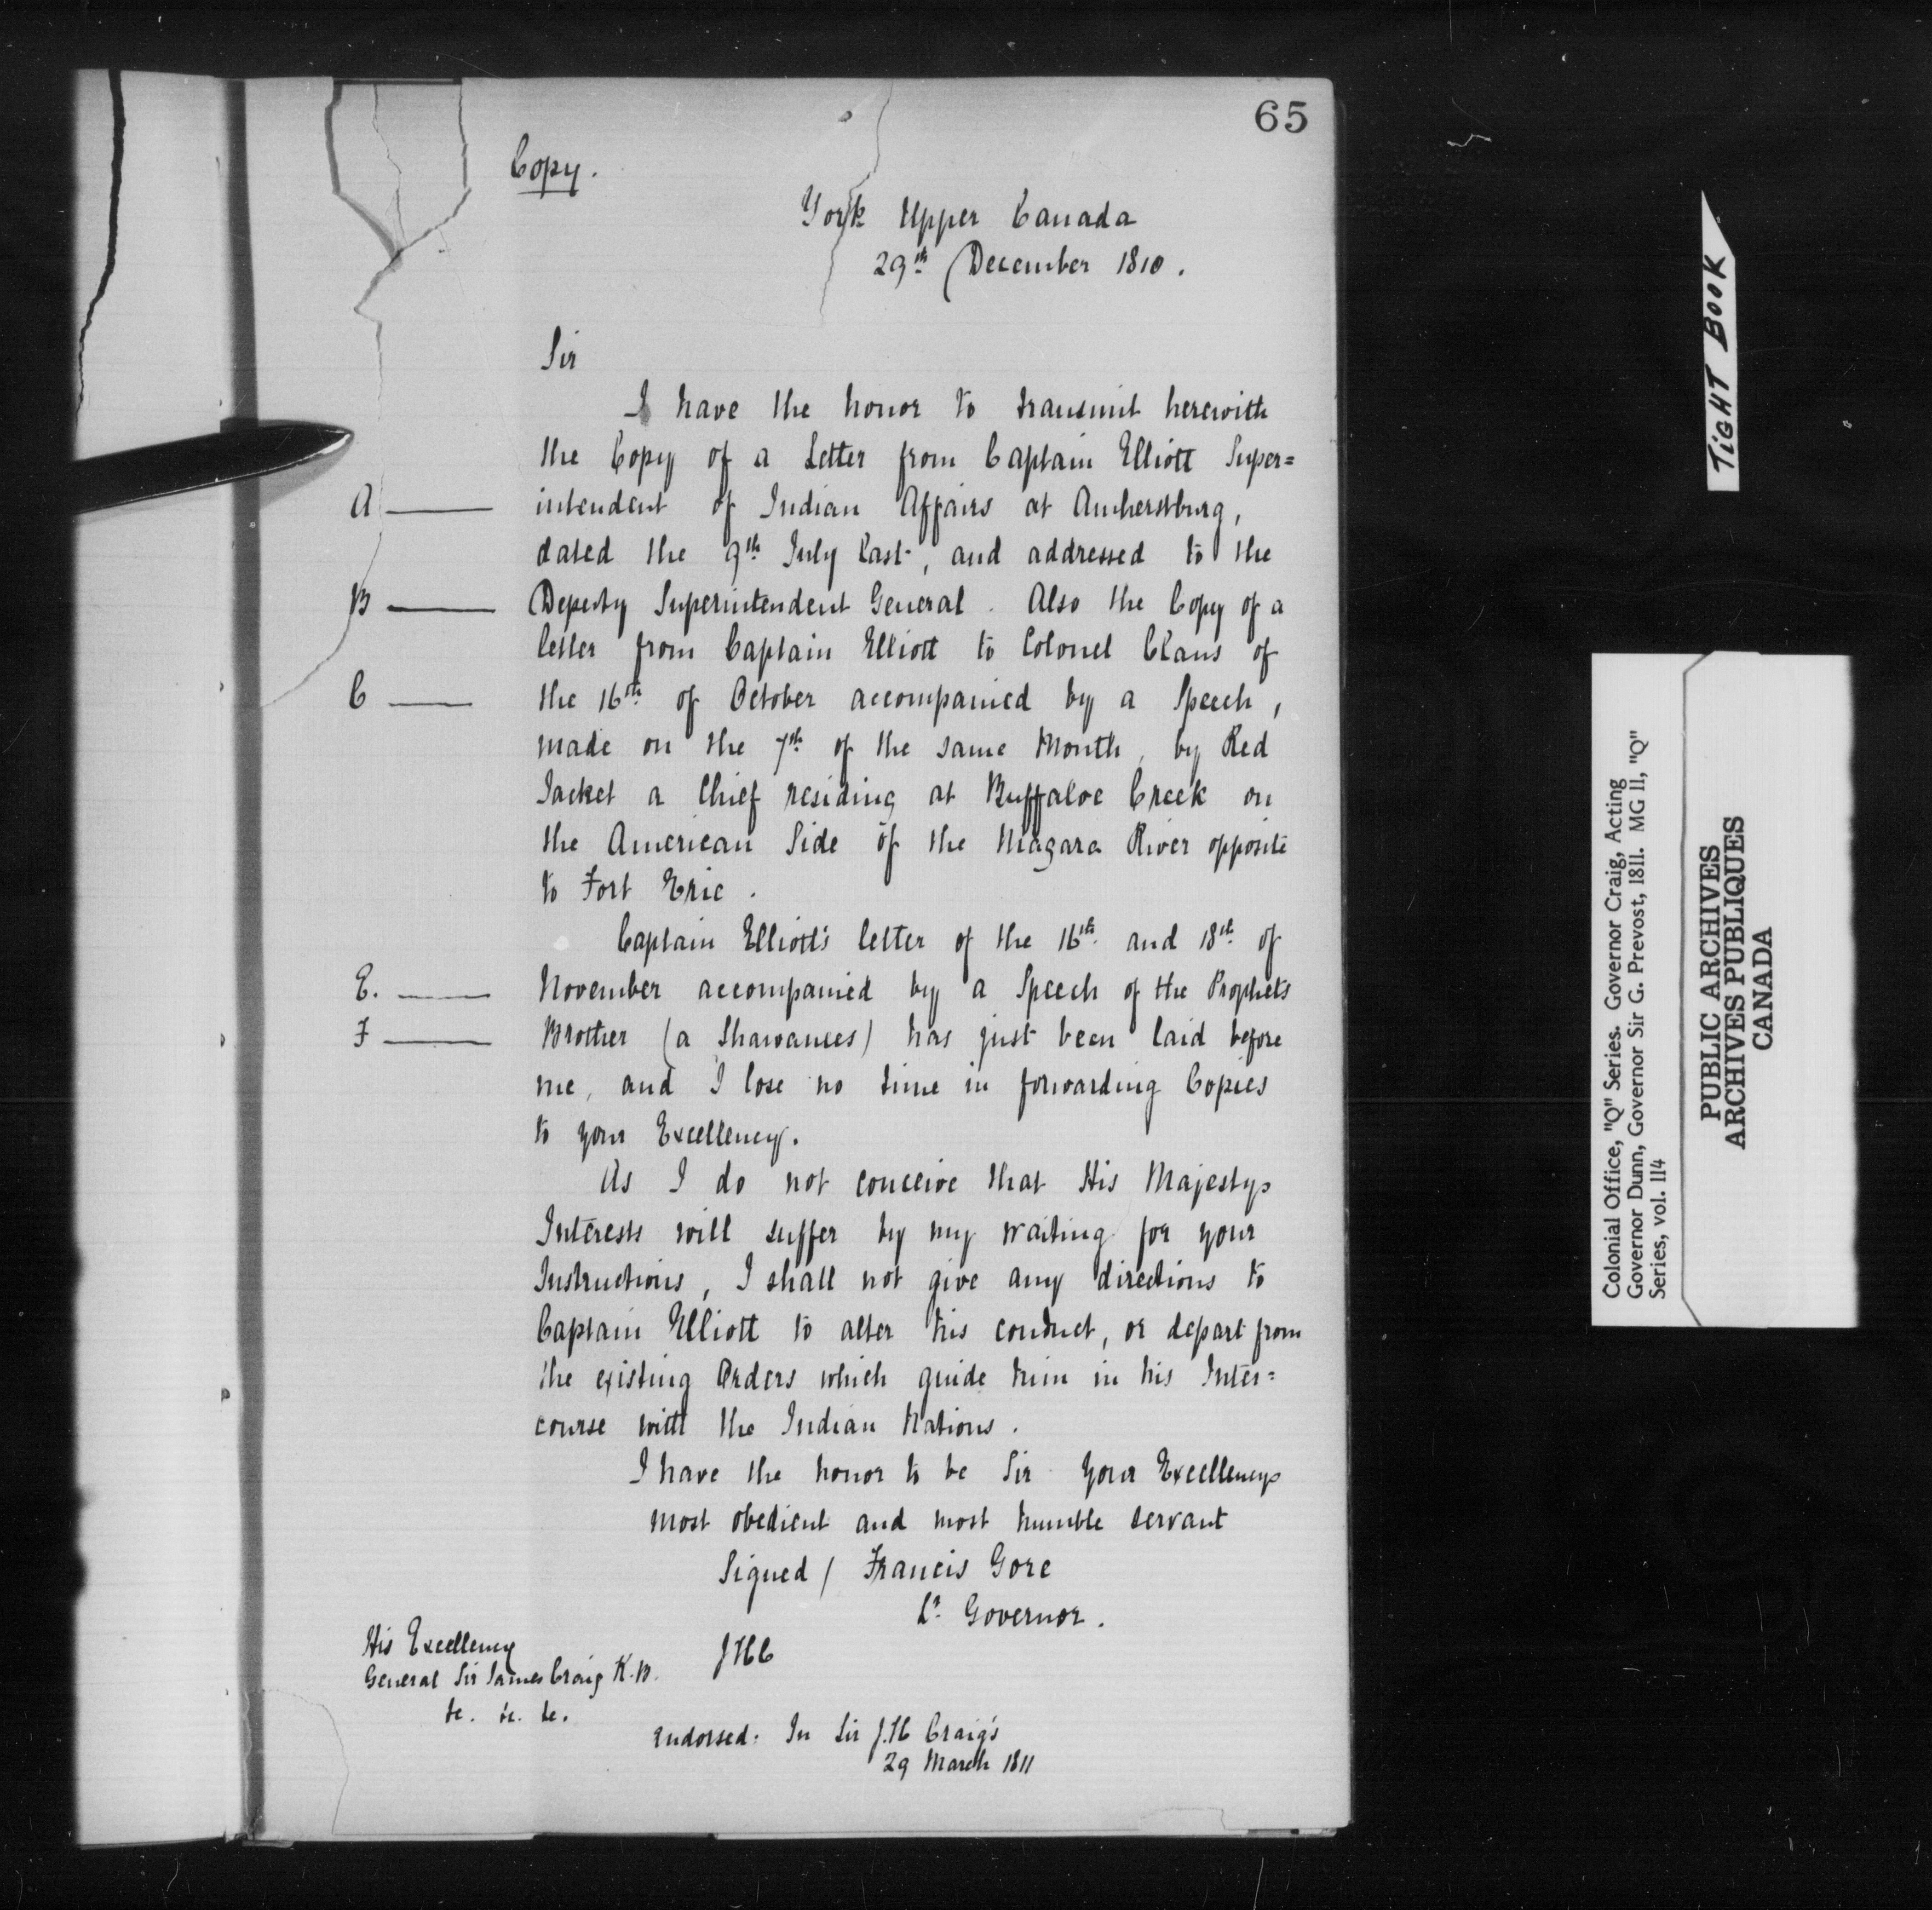 65
Copy.
York Upper Canada
29th December 1810.
Sir
I have the honor to transmit herewith
the Copy of a Letter from Captain Elliott Super=
A — intendent of Indian Affairs at Amherstburg,
dated the 9th July last, and addressed to the
B — Deputy Superintendent General. Also the Copy of a
letter from Captain Elliott to Colonel Claus of
C — the 16th of October accompanied by a Speech,
made on the 7th of the same Month, by Red
Jacket a Chief residing at Buffaloe Creek on
the American Side of the Niagara River opposite
to Fort Erie.
Captain Elliott's letter of the 16th and 18th of
E. — November accompanied by a Speech of the Prophets
F — Brother (a Shawanees) has just been laid before
me, and I lose no time in forwarding Copies
to your Excellency.
As I do not conceive that His Majestys
Interests will suffer by my waiting for your
Instructions, I shall not give any directions to
Captain Elliott to alter his conduct, or depart from
the existing Orders which guide him in his Inter=
course with the Indian Nations.
I have the honor to be Sir Your Excellencys
most obedient and most humble servant
Signed / Francis Gore
Lt. Governor.
His Excellency
General Sir James Craig K.B.
&c. &c. &c.
JHC
Endorsed: In Sir J.H Craig's
29 March 1811
TIGHT BOOK
Colonial Office, "Q" Series. Governor Craig, Acting
Governor Dunn, Governor Sir G. Prevost, 1811. MG 11, "Q"
Series, vol. 114
PUBLIC ARCHIVES
ARCHIVES PUBLIQUES
CANADA